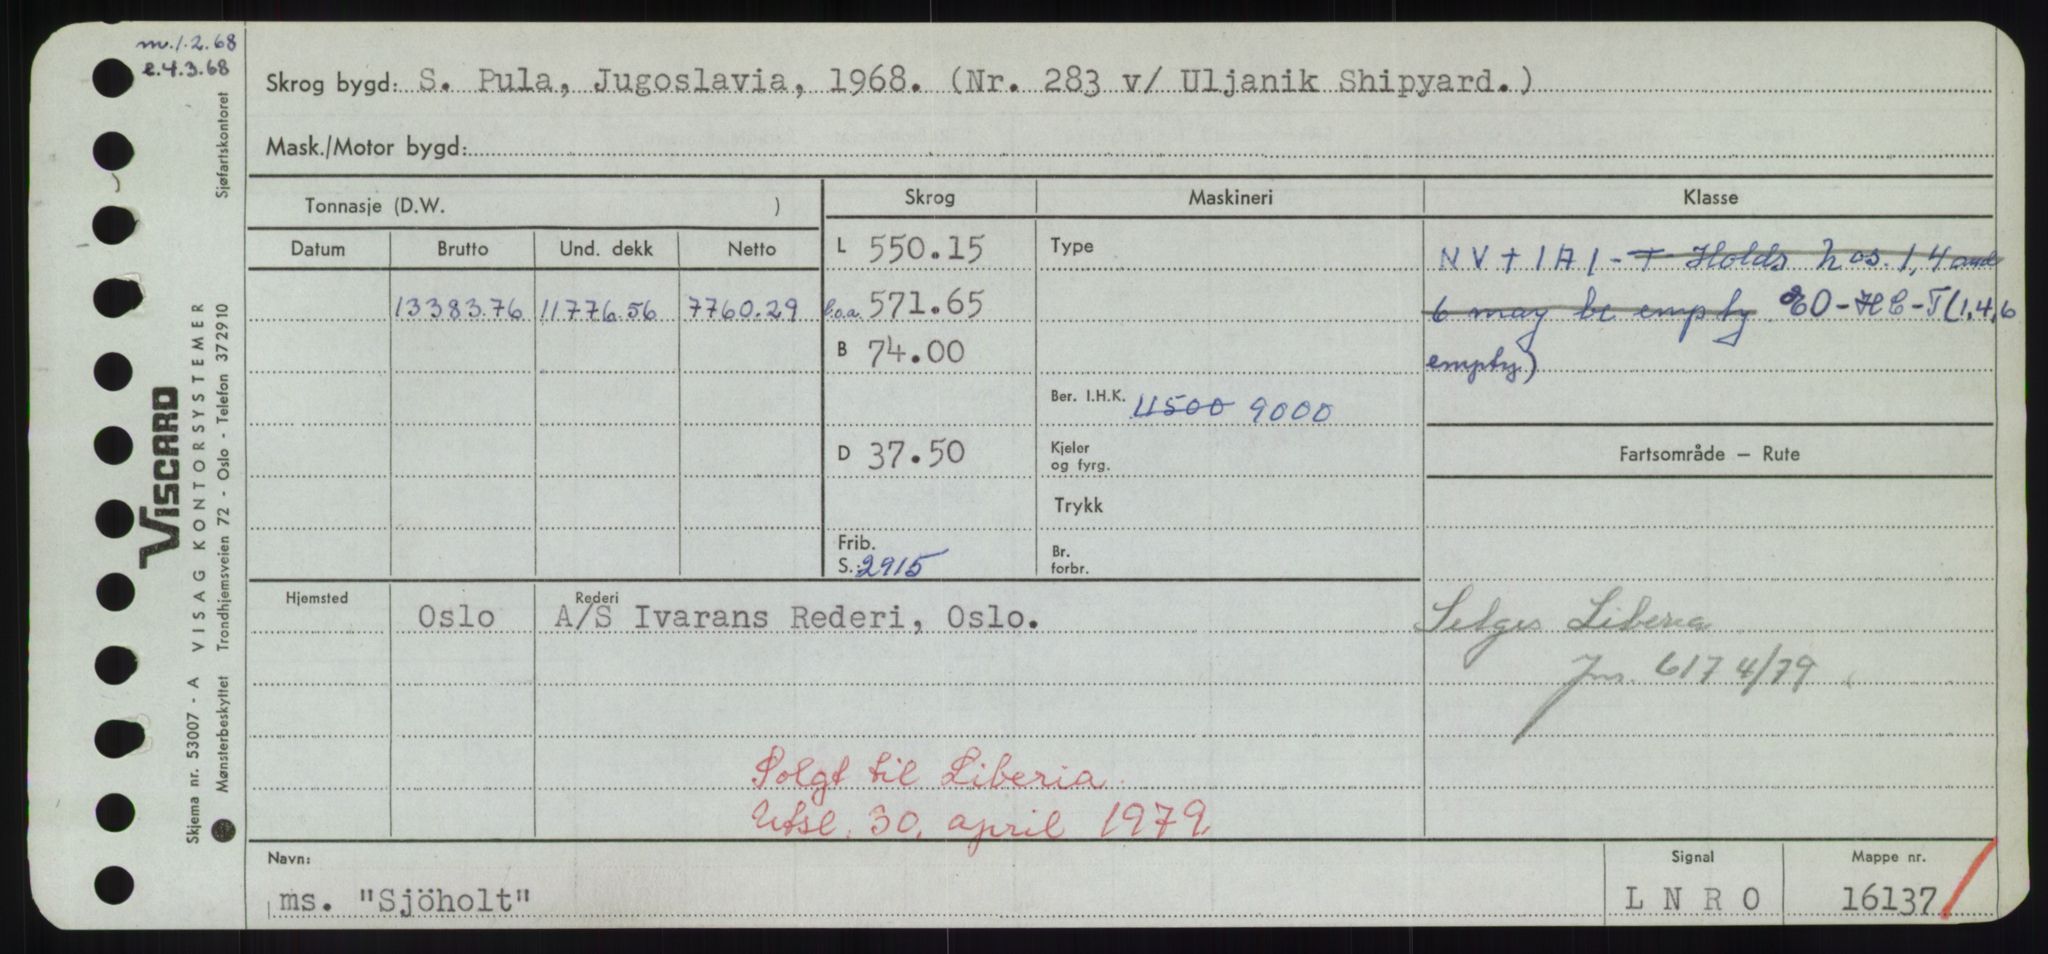 m.1.2.68
e.4.3.68
Skrog bygd: S. Pula, Jugoslavia, 1968. (Nr. 283 v/ Uljanik Shipyard.)
Mask./Motor bygd:
Tonnasje (D.W. )
Skrog
Maskineri
Klasse
Datum
Brutto
Und. dekk
Netto
13383.76 11776.56 7760.29
L 550.15
l.o.a. 571.65
B 74.00
D 37.50
Frib.
S. 2915
Type
Ber. I.H.K. 11500 9000
Kjeler
og fyrg.
Trykk
Br.
forbr.
NV + 1A1 - T Holds nos. 1,4 and
6 may be empty EO-HC-T(1,4,6
empty)
Fartsområde – Rute
Selges Liberia
Jnr. 617 4/79
Hjemsted
Oslo
Rederi
A/S Ivarans Rederi, Oslo.
Solgt til Liberia.
Utsl. 30. april 1979
Navn:
ms. "Sjöholt"
Signal
L N R O
Mappe nr.
16137
VISCARD
VISAG KONTORSYSTEMER
Skjema nr. 53007 - A
Mønsterbeskyttet Trondhjemsveien 72 - Oslo - Telefon 372910
Sjøfartskontoret